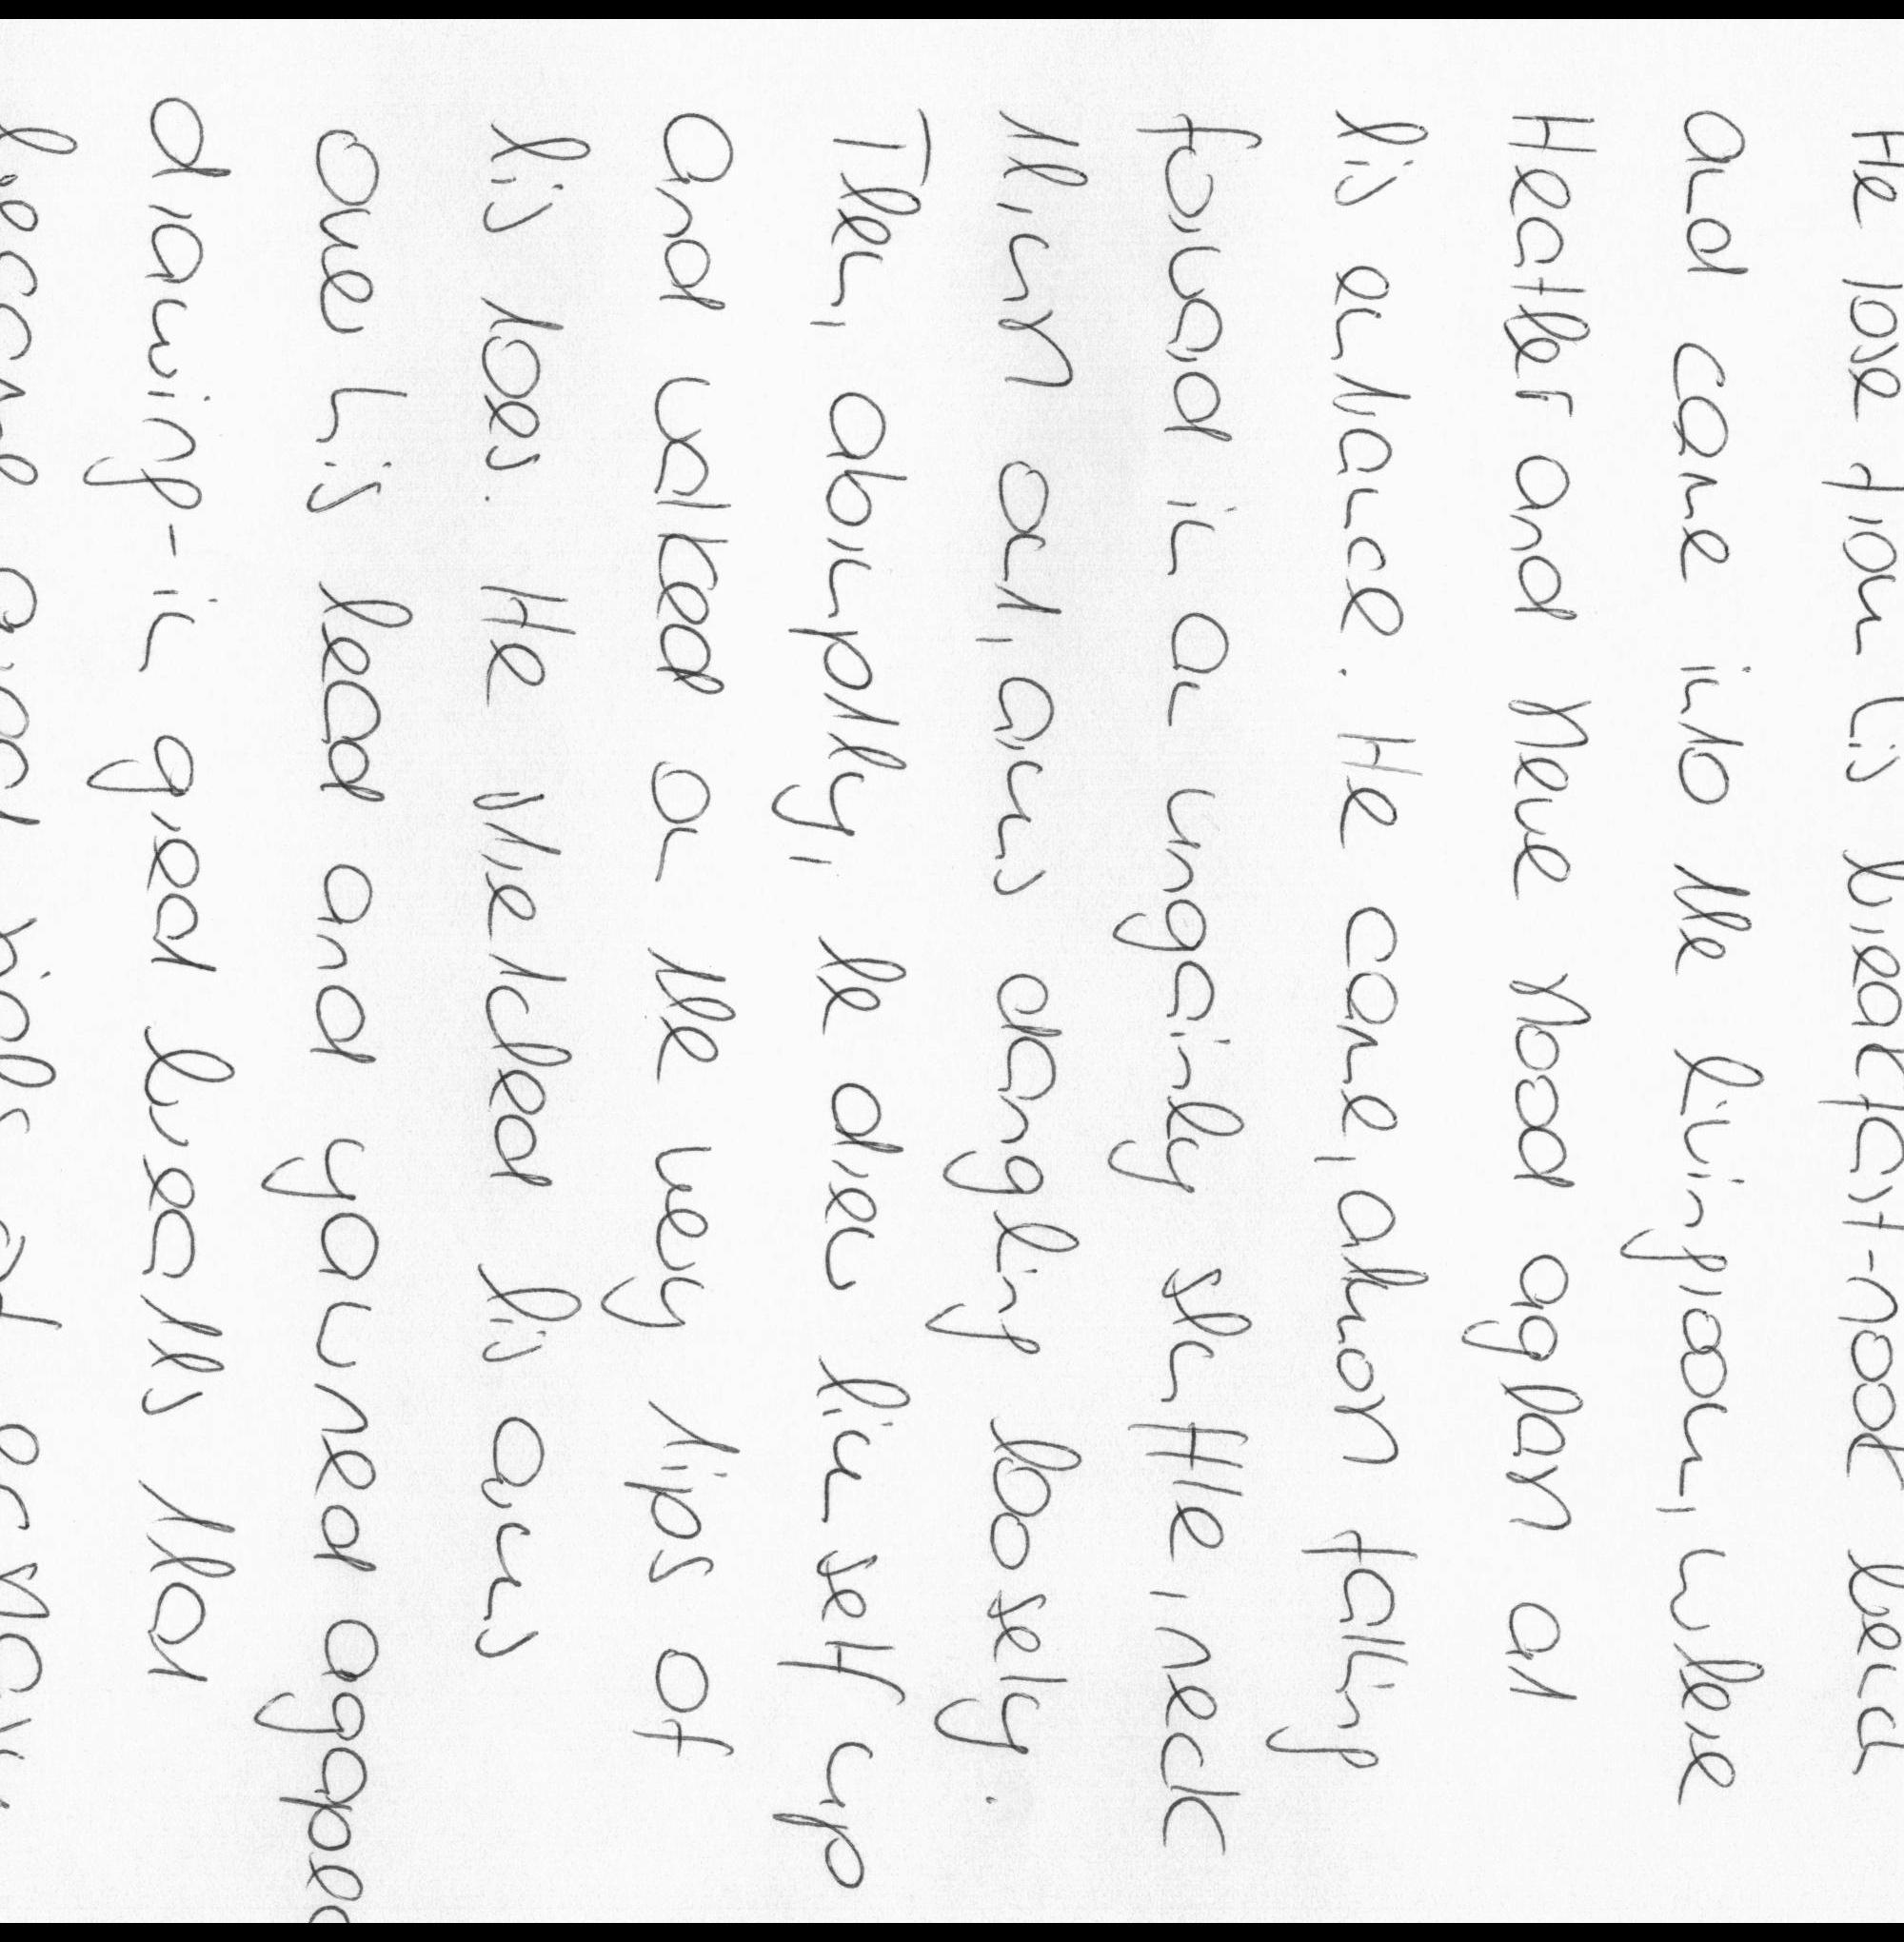 He rose from his breakfast-nook bench
and came into the livingroom, where
Heather and Steve stood aghast at
his entrance. He came, almost falling
forward in an ungainly shuffle, neck
thrust out, arms dangling loosely.
Then, abruptly, he drew himself up
and walked on the very tips of
his toes. He stretched his arms
over his head and yawned agape
drawing-in great breaths that